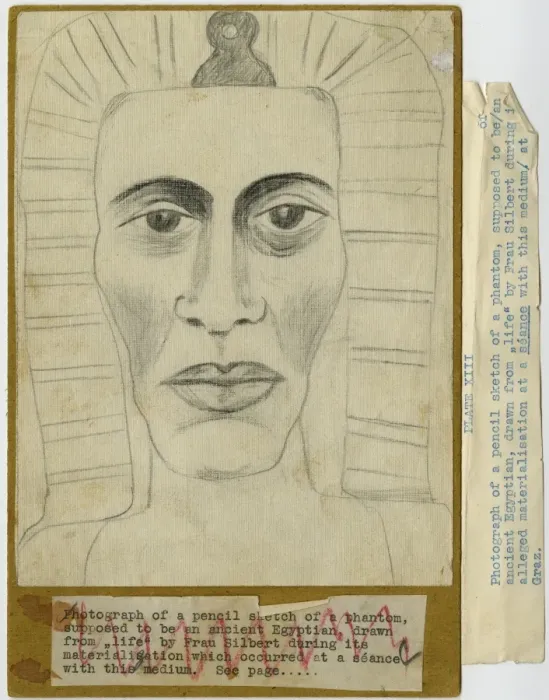 Photograph of a pencil sketch of a phantom,
supposed to be an ancient Egyptian, drawn
from „life" by Frau Silbert during its
materialisation which occurred at a séance
with this medium. See page.....
PLATE XIII
of
Photograph of a pencil sketch of a phantom, supposed to be/an
ancient Egyptian, drawn from „life" by Frau Silbert during
alleged materialisation at a séance with this medium/ at
Graz.